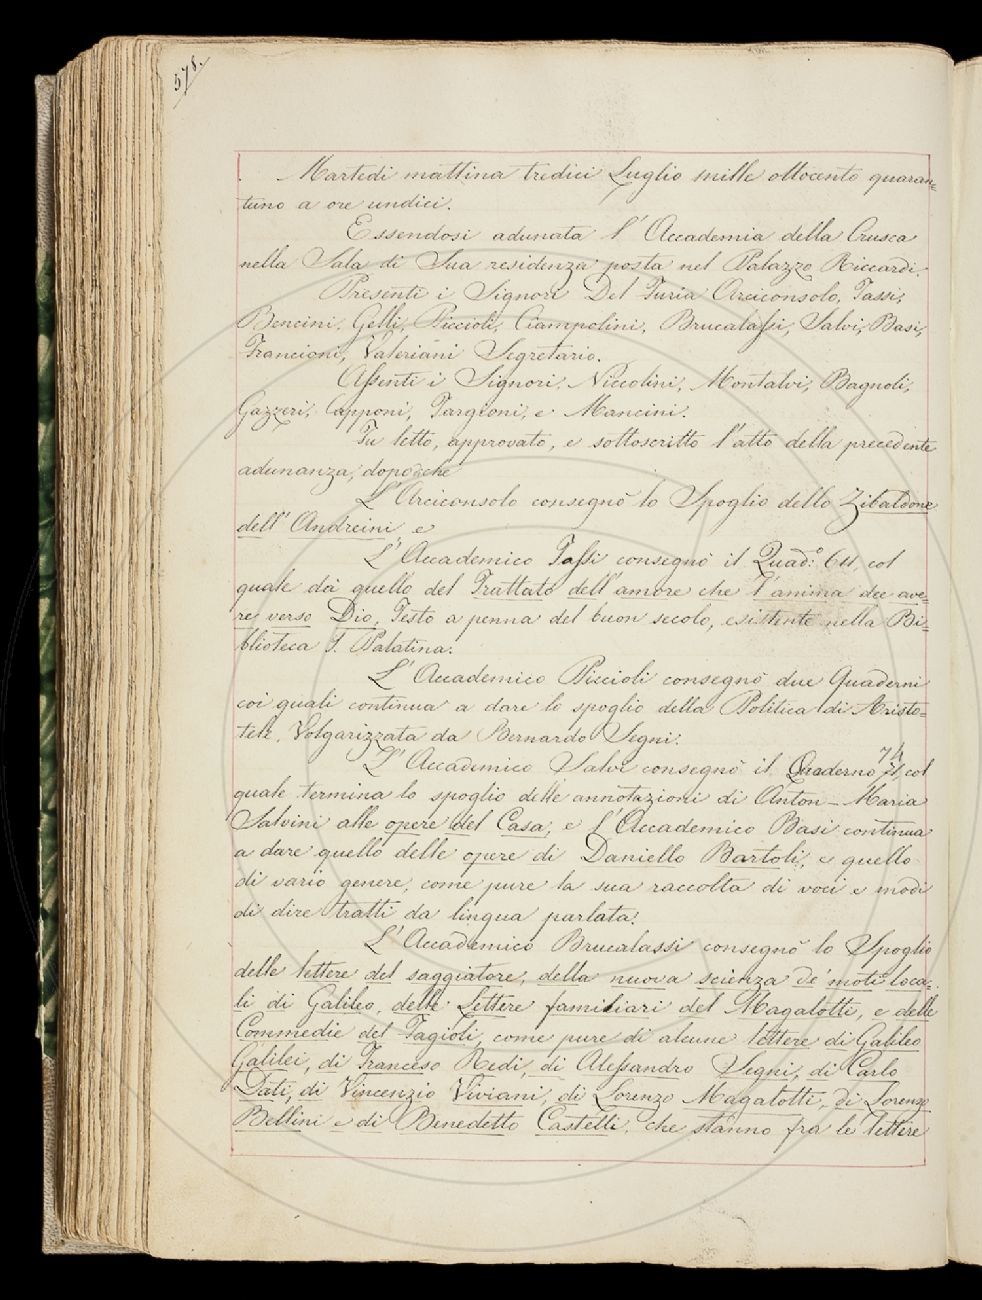 578.
Martedi mattina tredici Luglio mille ottocento quaran=
tuno a ore undici.
Essendosi adunata l' Accademia della Crusca
nella Sala di Sua residenza posta nel Palazzo Riccardi.
Presenti i Signori Del Furia Arciconsolo, Tassi,
Bencini, Gelli, Piccioli, Ciampolini, Brucalassi, Salvi, Basi,
Francioni, Valeriani Segretario.
Assenti i Signori. Niccolini, Montalvi, Bagnoli,
Gazzeri, Capponi, Targioni, e Mancini.
Fu letto, approvato, e sottoscritto l'atto della precedente
adunanza, dopo che
L'Arciconsolo consegnò lo Spoglio dello Zibaldone
dell' Andreini e
L' Accademico Tassi consegnò il Quad.º 611, col
quale dà quello del Trattato dell'amore che l'anima dee ave=
re verso Dio, Testo a penna del buon secolo, esistente nella Bi=
blioteca I. Palatina.
L' Accademico Piccioli consegnò due Quaderni
coi quali continua a dare lo spoglio della Politica di Aristo=
tele, Volgarizzata da Bernardo Segni.
L' Accademico Salvi consegnò il Quaderno 74, col
quale termina lo spoglio delle annotazioni di Anton-Maria
Salvini alle opere del Casa, e l'Accademico Basi continua
a dare quello delle opere di Daniello Bartoli, e quello
di vario genere, come pure la sua raccolta di voci e modi
di dire tratti da lingua parlata.
L' Accademico Brucalassi consegnò lo Spoglio
delle lettere del saggiatore, della nuova scienza de' moti loca=
li di Galileo, delle Lettere familiari del Magalotti, e delle
Commedie del Fagioli, come pure di alcune lettere di Galileo
Galilei, di Franceso Redi, di Alessandro Segni, di Carlo
Dati, di Vincenzio Viviani, di Lorenzo Magalotti, di Lorenzo
Bellini e di Benedetto Castelli, che stanno fra le lettere